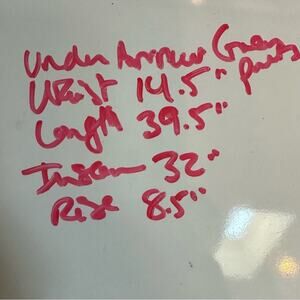 Under Armour Gray Pants
Waist 14.5"
Length 39.5"
Inseam 32"
Rise 8.5"